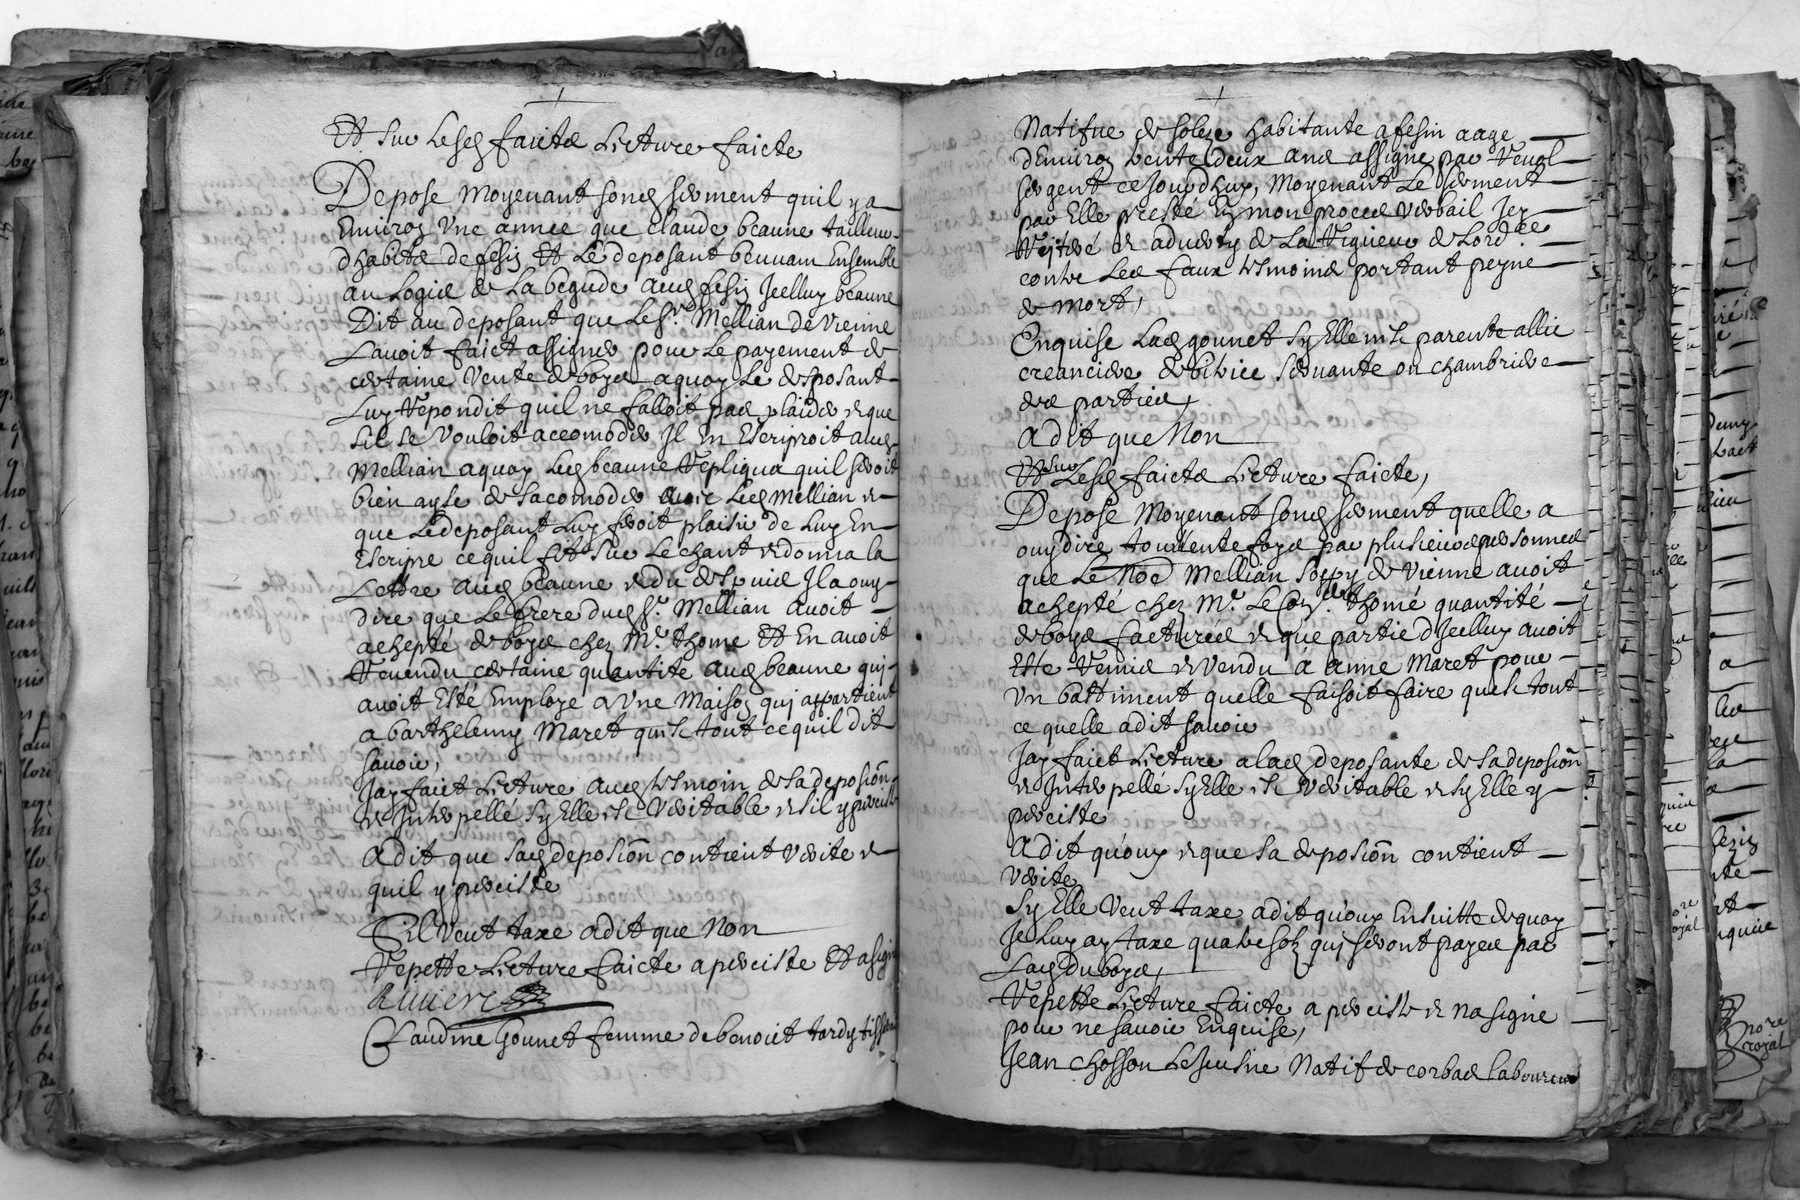 Et sur lesd faictz lecture faicte
Depose moyenant sond serment quil y a
Environ une année que claude beaune tailleur
dhabitz de fesin et le deposant beuvant Ensemble
au logis de la begude aud fesin Jcelluy beaune
Dit au deposant que le sr. Mellian de vienne
Lavoit faict assigner pour le payement de
certaine vente de boys a quoy le deposant
Luy repondit quil ne falloit pas plaider et que
sil se vouloit accomoder Jl En Escriproit aud
Mellian a quoy led beaune repliqua quil seroit
bien ayse de sacomoder avec led Mellian et
que Le deposant luy feroit plaisir de luy En
Escripre ce quil fit sur le chant et donna la
Lettre aud beaune et du despuis Jl a ouy
dire que le frere dud sr. Mellian avoit
achepté de boys chez Mr. thome Et En avoit
revendu certaine quantite aud beaune qui
avoit Esté Employe a une maison qui appartient
a barthelemy Maret qui est tout ce quil dit
savoir,
Jay faict lecture aud tesmoin de sa deposion
et Interpellé sy Elle est veritable et sil y persiste
A dit que sad deposion contient verite et
quil y persiste
Sil veut taxe a dit que Non
Repette lecture faicte a persiste Et a signé
Riviere
Claudine Gonnet femme de benoict tardy
Natifve de habitante a fesin aage
dEnviron trente deux ans assigne par
sergent ce jourdhuy, moyenant le serment
par Elle presté En mon proces verbail Jey
et adverty de la rigueur de Lordce
contre les faux tesmoins portant peyne
de mort,
Enquise lad gonnet sy Elle est parente allie
creanciere debitrice servante ou chambriere
des parties,
a dit que Non
Et sur lesd faictz lecture faicte,
Depose moyenant sond serment quelle a
ouy dire toutente foys par plusieurs personnes
que le Noe Mellian de vienne avoit
achepté chez Mr. le thomé quantité
de boys facturés et que partie dJcelluy avoit
Este remis et vendu à anne Maret pour
un battiment quelle faisoit faire quest tout
ce quelle a dit savoir
Jay faict lecture a lad deposante de sa deposion
et Interpellé sy Elle est veritable et sy Elle y
persiste
A dit quouy et que sa deposion contient
verite
sy Elle veut taxe a dit quouy Ensuitte de quoy
Je luy ay taxe quatre solz qui seront payes par
Lad du boys,
Repette lecture faicte a persiste et na signe
pour ne savoir Enquise,
Jean chosson le jeusne Natif de corbas laboureur